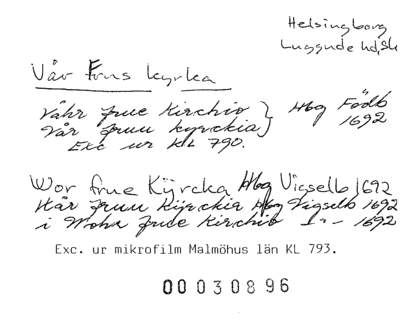 Helsingborg
Luggude hd, Sk
Vår Frus kyrka
Våhr frue Kirchio } Hbg Födb
Vår fruu kyrckia } 1692
Exc ur KL 790.
Wor frue Kÿrcka Hbg Vigselb 1692
Wår fruu Kÿrckia Hbg Vigselb 1692
i Wohr frue Kirchio — " — 1692
Exc. ur mikrofilm Malmöhus län KL 793.
00030896